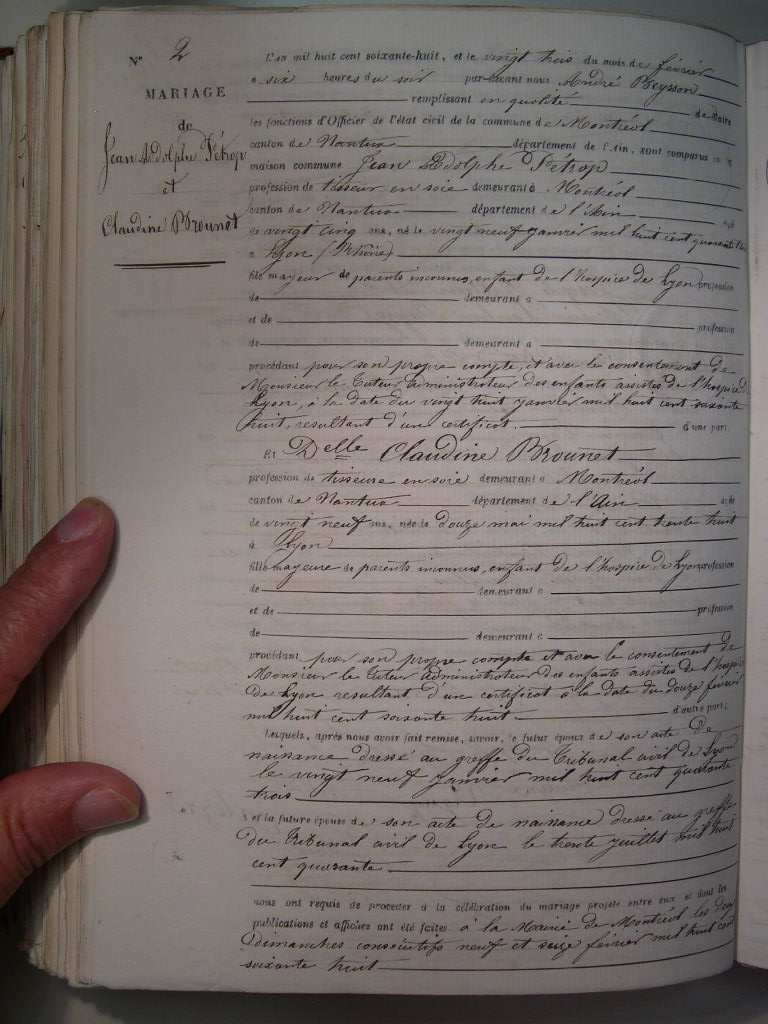 N° 2
MARIAGE
de
Jean Adolphe Pétrop
et
Claudine Brounet
L'an mil huit cent soixante-huit, et le vingt trois du mois de février
à six heures du soir par-devant nous André Reysson
remplissant en qualité de Maire
les fonctions d'Officier de l'état civil de la commune de Montréal
canton de Nantua département de l'Ain, sont comparus en la
maison commune Jean Adolphe Pétrop
profession de tisseur en soie demeurant à Montréal
canton de Nantua département de l'Ain âgé
de vingt cinq ans, né le vingt neuf janvier mil huit cent quarante trois
à Lyon (Rhône)
fils mayeur de parents inconnus, enfant de l'hospice de Lyon profession
de demeurant à
et de profession
de demeurant à
procédant pour son propre compte, et avec le consentement de
Monsieur le Tuteur administrateur des enfants assistés de l'hospice de
Lyon, à la date du vingt huit janvier mil huit cent soixante
huit, resultant d'un certificat. d'une part.
Et Delle Claudine Brounet
profession de tisseure en soie demeurant à Montréal
canton de Nantua département de l'Ain âgée
de vingt neuf ans, née le douze mai mil huit cent trente huit
à Lyon
fille mayeure de parents inconnus, enfant de l'hospice de Lyon profession
de demeurant à
et de profession
de demeurant à
procédant pour son propre compte et avec le consentement de
Monsieur le Tuteur administrateur des enfants assistés de l'hospice
de Lyon resultant d'un certificat à la date du douze février
mil huit cent soixante huit d'autre part;
Lesquels, après nous avoir fait remise, savoir, le futur époux de son acte de
naissance dressé au greffe du Tribunal civil de Lyon
le vingt neuf janvier mil huit cent quarante
trois
et la future épouse de son acte de naissance dressé au greffe
du Tribunal civil de Lyon le trente juillet mil huit
cent quarante
nous ont requis de procéder à la célébration du mariage projeté entre eux et dont les
publications et affiches ont été faites à la Mairie de Montréal les deux
dimanches consécutifs neuf et seize février mil huit cent
soixante huit